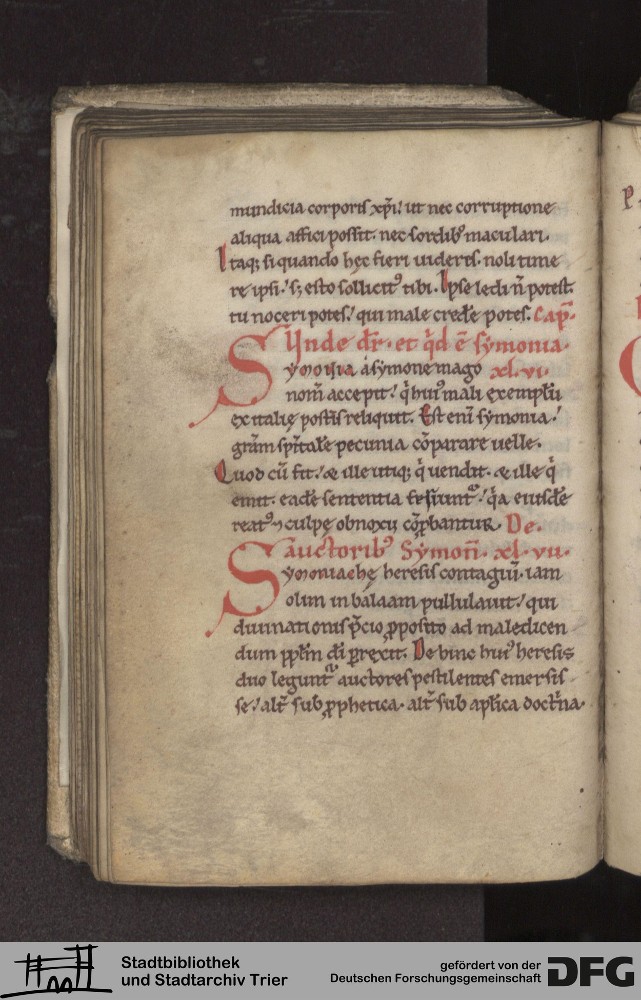 mundicia corporis xp̄i. ut nec corruptione
aliqua affici possit. nec sordib; maculari.
Itaq; si quando hęc fieri uideris. noli time
re ipsi. s; esto sollicit᷒ tibi. Ipse ledi n̄ potest.
tu noceri potes. qui male crede͛ potes. Cap̄.
Unde dr̄. et q̇d ē symonia.
Symonia a symone mago xl. vi.
nom̄ accepit. q̇ hui᷒ mali exemplū
ex italię post͛is reliquit. Est eni̅ symonia.
grām sp̄italē pecunia cōparare uelle.
Quod cū fit. & ille utiq; q̇ uendit. & ille q̇
emit. eadē sententia feriunt᷑. q̇a eiusdē
reat᷒ ⁊ culpę obnoxii cōp̱bantur. De
auctorib᷒ Symon̄. xl. vii.
Symoniachę heresis contagiū. iam
olim in balaam pullulauit. qui
diuinationis p̄cio ꝓposito ad maledicen
dum pp̄lm̄ dī ꝑrexit. De hinc hui᷒ heresis
duo legunt᷑ auctores pestilentes emersis
se. alt͛ sub ꝓphetica. alt͛ sub ap̄lica doctrina.
Stadtbibliothek
und Stadtarchiv Trier
gefördert von der
Deutschen Forschungsgemeinschaft
DFG